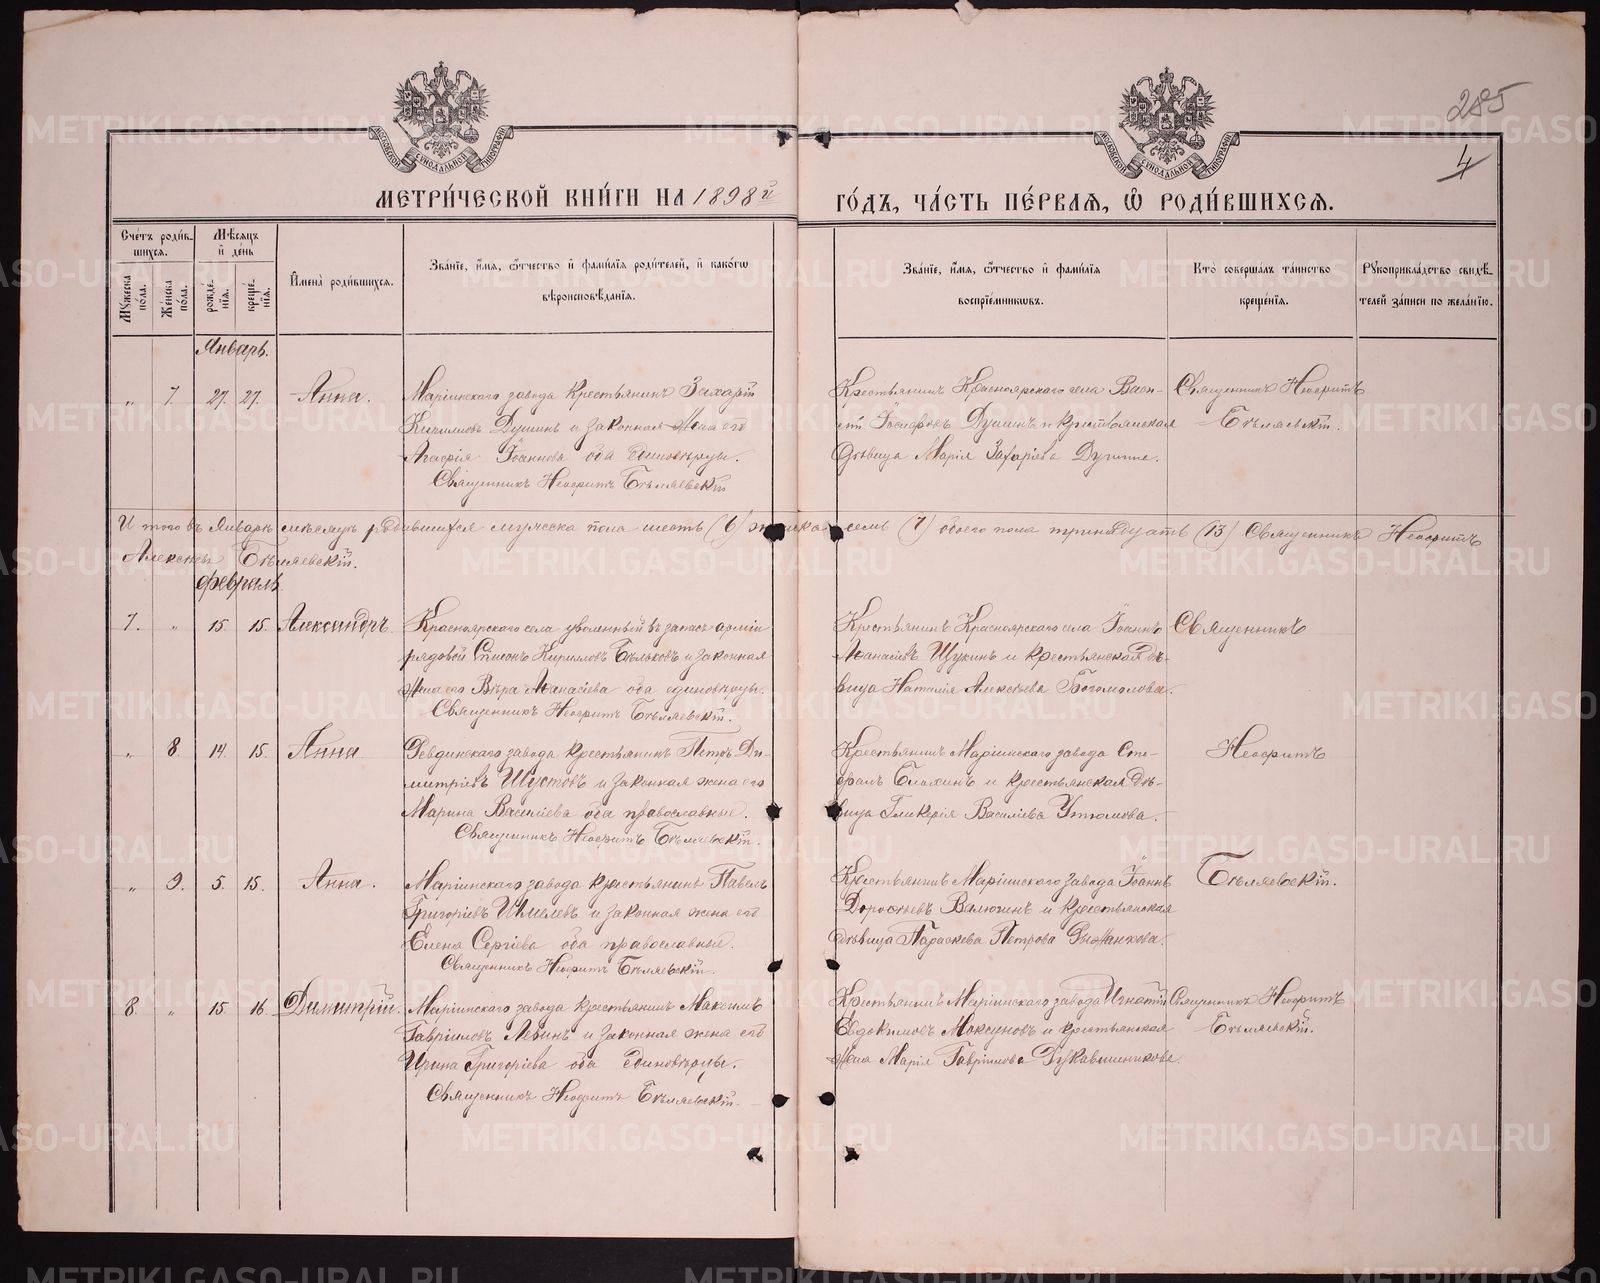 285
4
МОСКОВСКОЙ СУНОДАЛЬНОЙ ТИПОГРАФІИ
МОСКОВСКОЙ СУНОДАЛЬНОЙ ТИПОГРАФІИ
МЕТРИ́ЧЕСКОЙ КНИ́ГИ НА 1898й ГО́ДЪ, ЧА́СТЬ ПЕ́РВАѦ, Ѽ РОДИ́ВШИХСѦ.
Сче́тъ роди́в-
шихсѧ.
Мѣ́сѧцъ
и҆ де́нь
Мꙋ́жеска
по́ла.
Же́нска
по́ла.
рожде́-
нїѧ.
креще́-
нїѧ.
И҆мена̀ роди́вшихсѧ.
Зва́нїе, и҆́мѧ, ѻ҆́тчество и҆ фами́лїѧ роди́телей, и҆ како́гѡ
вѣроисповѣ́данїѧ.
Зва́нїе, и҆́мѧ, ѻ҆́тчество и҆ фами́лїѧ
воспрїе́мниквъ.
Кто̀ соверша́лъ та́инство
креще́нїѧ.
Рꙋкоприкла́дство свидѣ́-
телей за́писи по жела́нїю.
Январь.
„ 7 27. 27. Анна.
Маріинскаго завода крестьянинъ Захарій
Душинъ и законная жена его
Агафія Іоаннова оба единовѣрцы.
Священникъ Неофитъ Бѣляевскій
Крестьянинъ Красноярскаго села Васи-
лій Іосифовъ Душинъ и крестьянская
дѣвица Марія Захаріева Душина.
Священникъ Неофитъ
Бѣляевскій.
Итого въ Январѣ мѣсяцѣ родившихся мужеска пола шесть (6) женска семь (7) обоего пола тринадцать (13) Священникъ Неофитъ
Бѣляевскій.
Февраль.
7. „ 15. 15. Александръ.
Красноярскаго села уволенный въ запасъ арміи
рядовой Кирилловъ Бѣльковъ и законная
жена его Вѣра Аѳанасіева оба единовѣрцы.
Священникъ Неофитъ Бѣляевскій.
Крестьянинъ Красноярскаго села Іоаннъ
Аѳанасіевъ Щукинъ и крестьянская дѣ-
вица Наталія Алексѣева Богомолова.
Священникъ
„ 8 14. 15. Анна
Ревдинскаго завода крестьянинъ Петръ Ди-
митріевъ Шустовъ и законная жена его
Марина Василіева оба православные.
Священникъ Неофитъ Бѣляевскій.
Крестьянинъ Маріинскаго завода Сте-
фанъ Блохинъ и крестьянская дѣ-
вица Гликерія Василіева Утюмова.
Неофитъ
„ 9. 5. 15. Анна.
Маріинскаго завода крестьянинъ Павелъ
Григоріевъ Шмелевъ и законная жена его
Елена Сергіева оба православные.
Священникъ Неофитъ Бѣляевскій.
Крестьянинъ Маріинскаго завода Іоаннъ
Дороѳеевъ Валюгинъ и крестьянская
дѣвица Параскева Петрова
Бѣляевскій.
8. „ 15. 16. Димитрій.
Маріинскаго завода крестьянинъ Максимъ
Гавріиловъ Левинъ и законная жена его
Ирина Григоріева оба единовѣрцы.
Священникъ Неофитъ Бѣляевскій.
Крестьянинъ Маріинскаго завода Игнатій
Евдокимовъ и крестьянская
жена Марія Гавріилова Рукавишникова.
Священникъ Неофитъ
Бѣляевскій.
METRIKI.GASO-URAL.RU